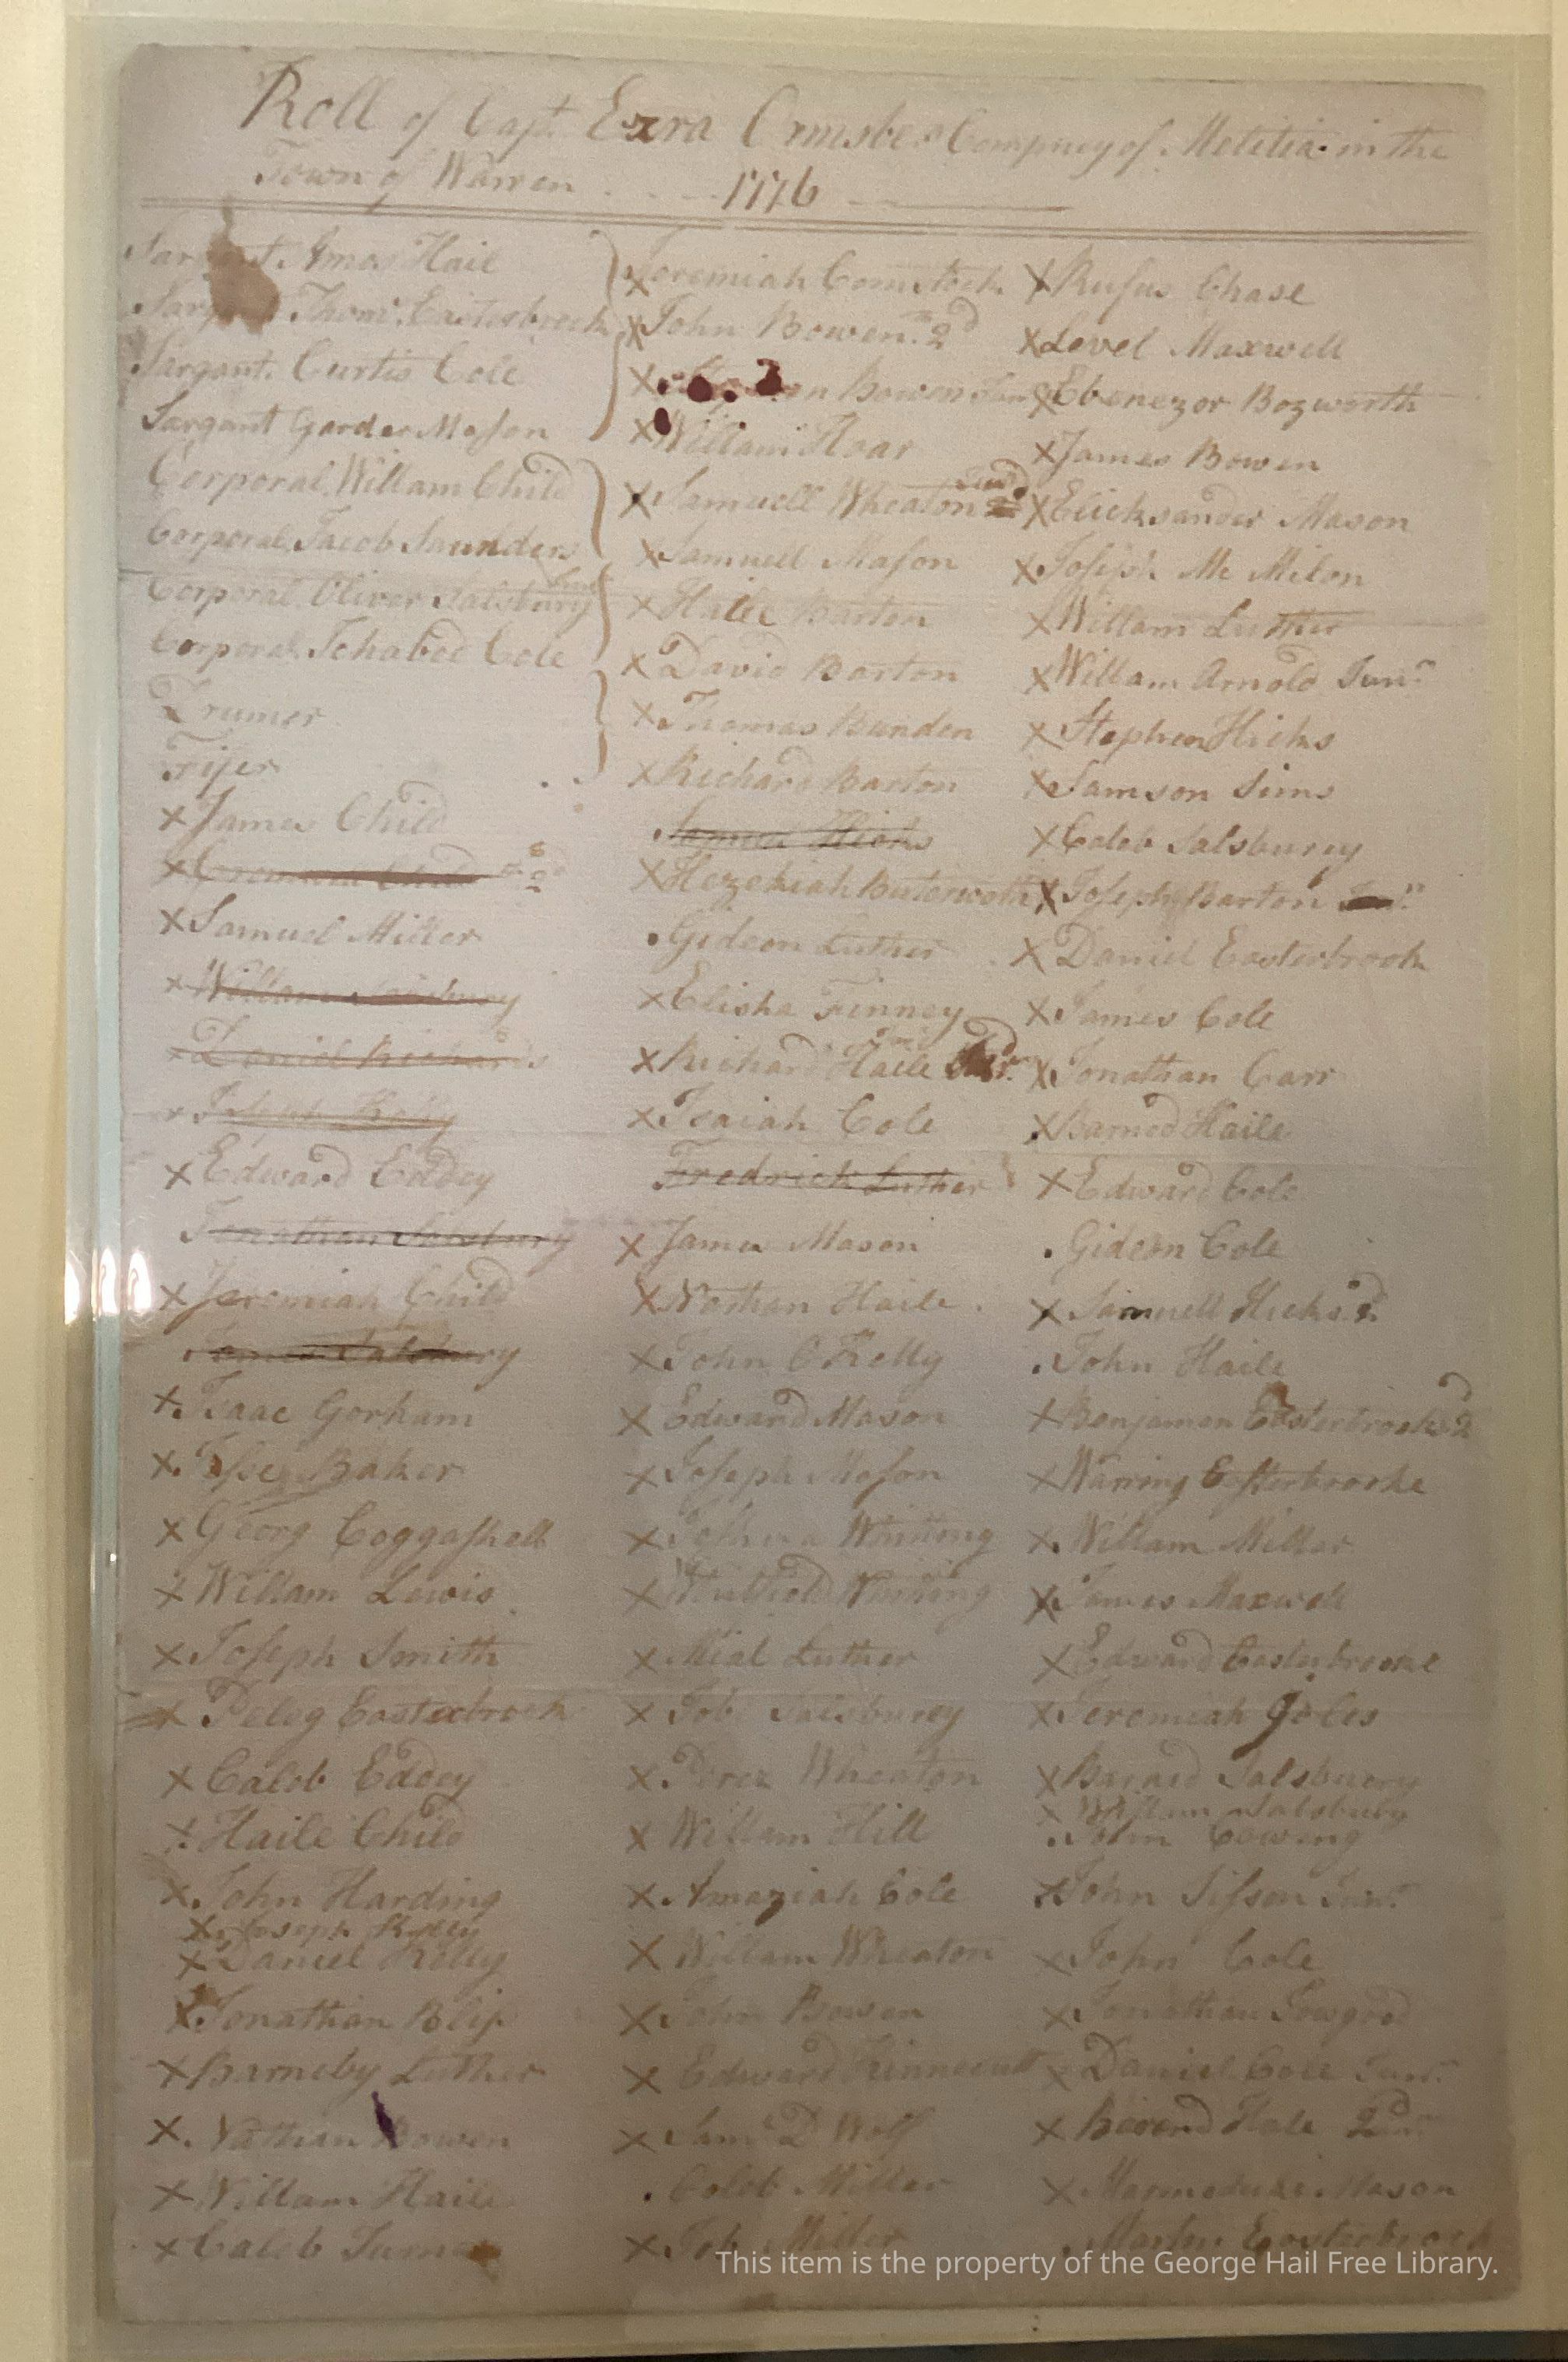 Roll of Capt Ezra Ormsbes Company of Meletia in the
Town of Warren 1776
Sargant Amos Hail
Sargant Thoms Eastesbrook
Sargant Curtis Cole
Sargant Garder Mason
Corporal Willam Child
Corporal Jacob Saunders
Corporal Oliver Salsbury
Corporal Ichabod Cole
Drumer
Fifer
X James Child
X Child 2d
X Samuel Miller
X Willam Salsbury
X Daniel Richards
X Joseph Kelly
X Edward Eddey
Jonathan Salsbury
X Jeremiah Child
James Salsbury
X Isaac Gorham
X Jesse Baker
X Georg Coggashell
X Willam Lewis
X Joseph Smith
X Peleg Easterbrook
X Caleb Eddey
X Haile Child
X John Harding
X Joseph Kelley
X Daniel Kelly
X Jonathan Blis
X Barneby Luther
X Nathan Bowen
X Willam Haile
X Caleb Turner
X Jeremiah Comstock
X John Bowen 2d
X Bowen Junr
X William Hoar
X Samuell Wheaton 2d
X Samuell Mason
X Haile Barton
X David Barton
X Thomas Bunden
X Richard Barton
Samuel Hicks
X Hezekiah Buterworth
Gideon Luther
X Elisha Finney
X Richard Haile
X Isaiah Cole
Fredrick Luther
X James Mason
X Nathan Haile
X John OKelly
X Edward Mason
X Joseph Mason
X Joshua Whitting
X Whitting
X Mial Luther
X Job Salsburey
X Perez Wheaton
X Willam Hill
X Amaziah Cole
X Willam Wheaton
X John Bowen
X Edward Kinnecutt
X Saml D Wolf
Coleb Miller
X Job Miller
X Rufus Chase
X Level Maxwell
X Ebenezor Bozworth
X James Bowen
X Elicksander Mason
X Joseph Mc Milon
X Willam Luther
X Willam Arnold Junr
X Stephen Hicks
X Samson Sims
X Coleb Salsburey
X Joseph Barton
X Daniel Easterbrook
X James Cole
X Jonathan Carr
X Barned Haile
X Edward Cole
Gideon Cole
X Samuell Hicks 2d
John Haile
X Benjamen Easterbrooks 2d
X Warring Easterbrooke
X Willam Miller
X James Maxwell
X Edward Easterbrooke
X Jeremiah Joles
X Barned Salsburey
X Willam Salsbury
John Cowing
X John Sisson Junr
X John Cole
X Jonathan Towgood
X Daniel Cole Junr
X Hale 2d
X Marmeduke Mason
Marten Easterbrook
This item is the property of the George Hail Free Library.